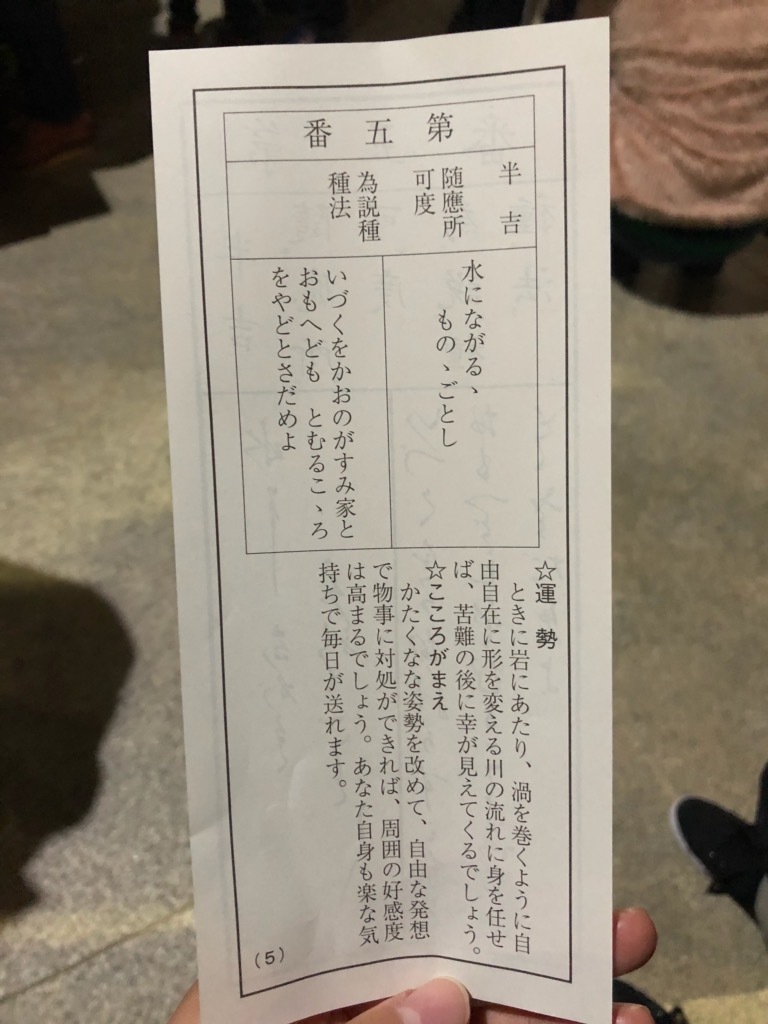 第五番
半吉
随應所
可度
為説種
種法
水にながるゝ
ものゝごとし
いづくをかおのがすみ家と
おもへども　とむるこゝろ
をやどとさだめよ
☆運　勢
ときに岩にあたり、渦を巻くように自
由自在に形を変える川の流れに身を任せ
ば、苦難の後に幸が見えてくるでしょう。
☆こころがまえ
かたくなな姿勢を改めて、自由な発想
で物事に対処ができれば、周囲の好感度
は高まるでしょう。あなた自身も楽な気
持ちで毎日が送れます。
（5）